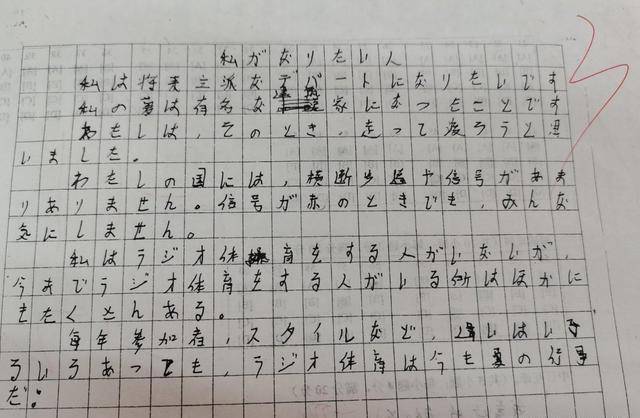 私がなりたい人
私は将来立派なデパートになりたいです
私の夢は有名な家になったことです
わたしは、そのとき、走って渡ろうと思
いました。
わたしの国には、横断歩道や信号があま
りありません。信号が赤のときでも、みんな
気にしません。
私はラジオ体育をする人がいないが、
今までラジオ体育をする人がいる所はほかに
きたくとんある。
毎年参加者、スタイルなど、違いはいろ
るいろあっても、ラジオ体育は今も夏の行事
だ。